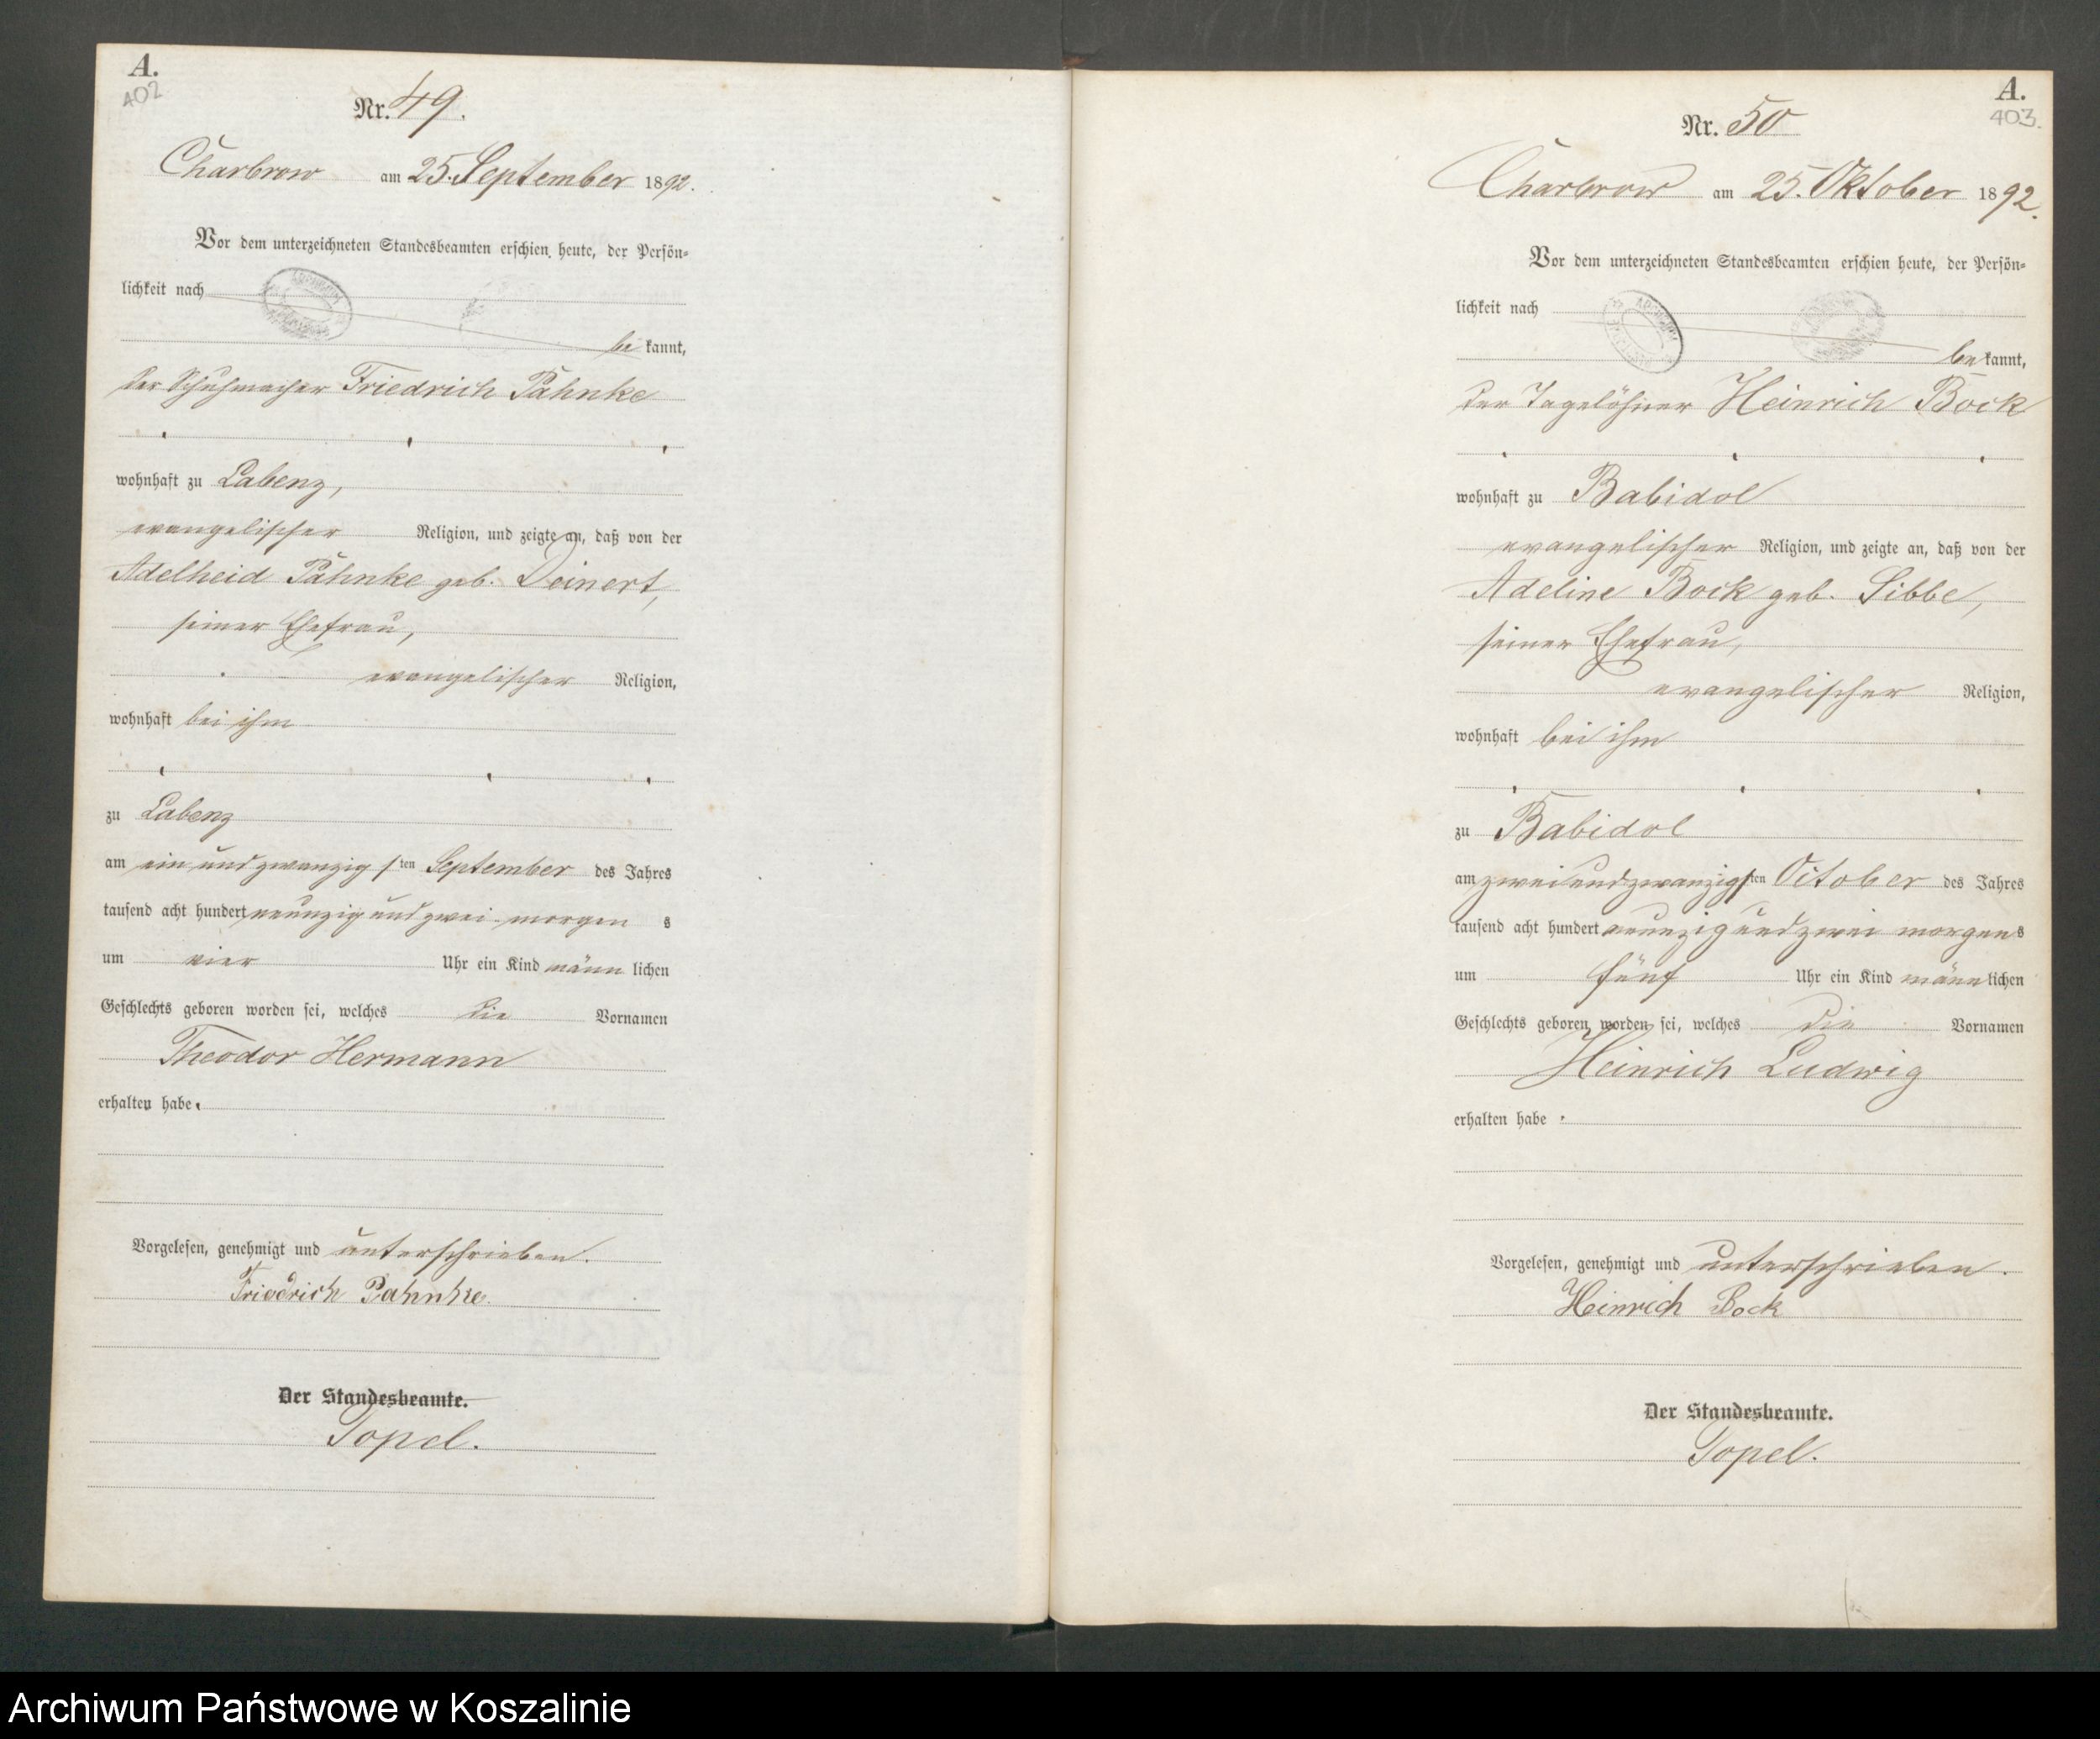 A.
402
Nr. 49.
Charbrow am 25. September 1892.
Vor dem unterzeichneten Standesbeamten erschien heute, der Persön-
lichkeit nach
be kannt,
der Schuhmacher Friedrich Pahnke
wohnhaft zu Labenz,
evangelischer Religion, und zeigte an, daß von der
Adelheid Pahnke geb. Deinert,
seiner Ehefrau,
evangelischer Religion,
wohnhaft bei ihm
zu Labenz
am ein und zwanzigsten September des Jahres
tausend acht hundert neunzig und zwei morgens
um vier Uhr ein Kind männlichen
Geschlechts geboren worden sei, welches die Vornamen
Theodor Hermann
erhalten habe.
Vorgelesen, genehmigt und unterschrieben.
Friedrich Pahnke.
Der Standesbeamte.
Topel.
A.
403.
Nr. 50
Charbrow am 25. Oktober 1892.
Vor dem unterzeichneten Standesbeamten erschien heute, der Persön-
lichkeit nach
be kannt,
der Tagelöhner Heinrich Bock
wohnhaft zu Babidol
evangelischer Religion, und zeigte an, daß von der
Adeline Bock geb. Sibbe,
seiner Ehefrau,
evangelischer Religion,
wohnhaft bei ihm
zu Babidol
am zweiundzwanzigsten October des Jahres
tausend acht hundert neunzig und zwei morgens
um fünf Uhr ein Kind männlichen
Geschlechts geboren worden sei, welches die Vornamen
Heinrich Ludwig
erhalten habe.
Vorgelesen, genehmigt und unterschrieben.
Heinrich Bock
Der Standesbeamte.
Topel.
Archiwum Państwowe w Koszalinie